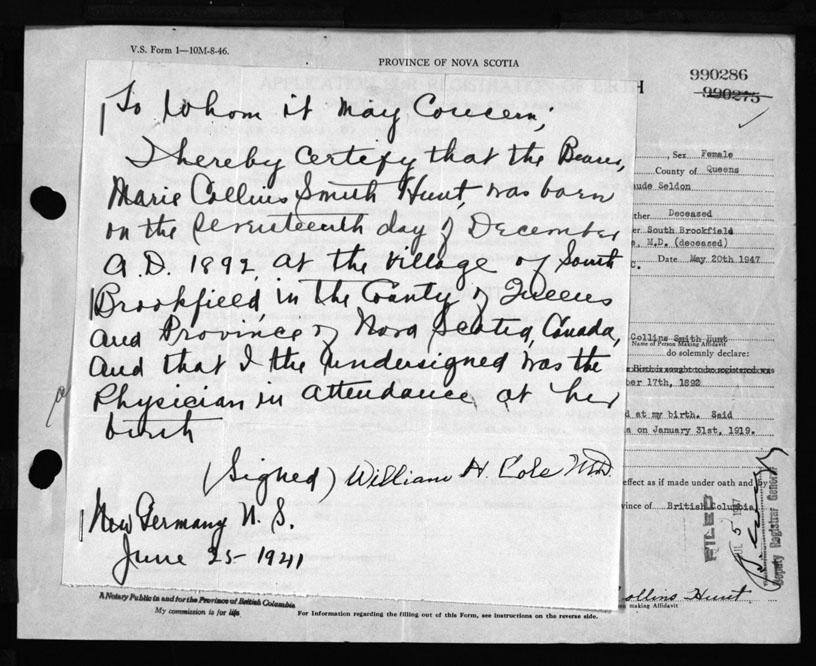 V.S. Form 1—10M-8-46.
PROVINCE OF NOVA SCOTIA
APPLICATION FOR REGISTRATION OF BIRTH
990286
990275
To Whom it May Concern;
I hereby certify that the Bearer,
Marie Collins Smith Hunt, was born
on the seventeenth day of December
A.D. 1892, at the village of South
Brookfield, in the County of Queens
and Province of Nova Scotia, Canada,
and that I the undersigned was the
Physician in attendance at her
birth
(Signed) William H. Cole M.D.
New Germany N.S.
June 25-1941
, Sex Female
County of Queens
aude Seldon
ther Deceased
er South Brookfield
, M.D. (deceased)
C. Date May 20th 1947
Collins Smith Hunt
Name of Person Making Affidavit
do solemnly declare:
Birth sought to be registered was
ber 17th, 1892
d at my birth. Said
a on January 31st, 1919.
effect as if made under oath and by
vince of British Columbia
FILED
5 1947
Deputy Registrar General
ollins Hunt
on making Affidavit
A Notary Public in and for the Province of British Columbia
My commission is for life
For Information regarding the filling out of this Form, see instructions on the reverse side.